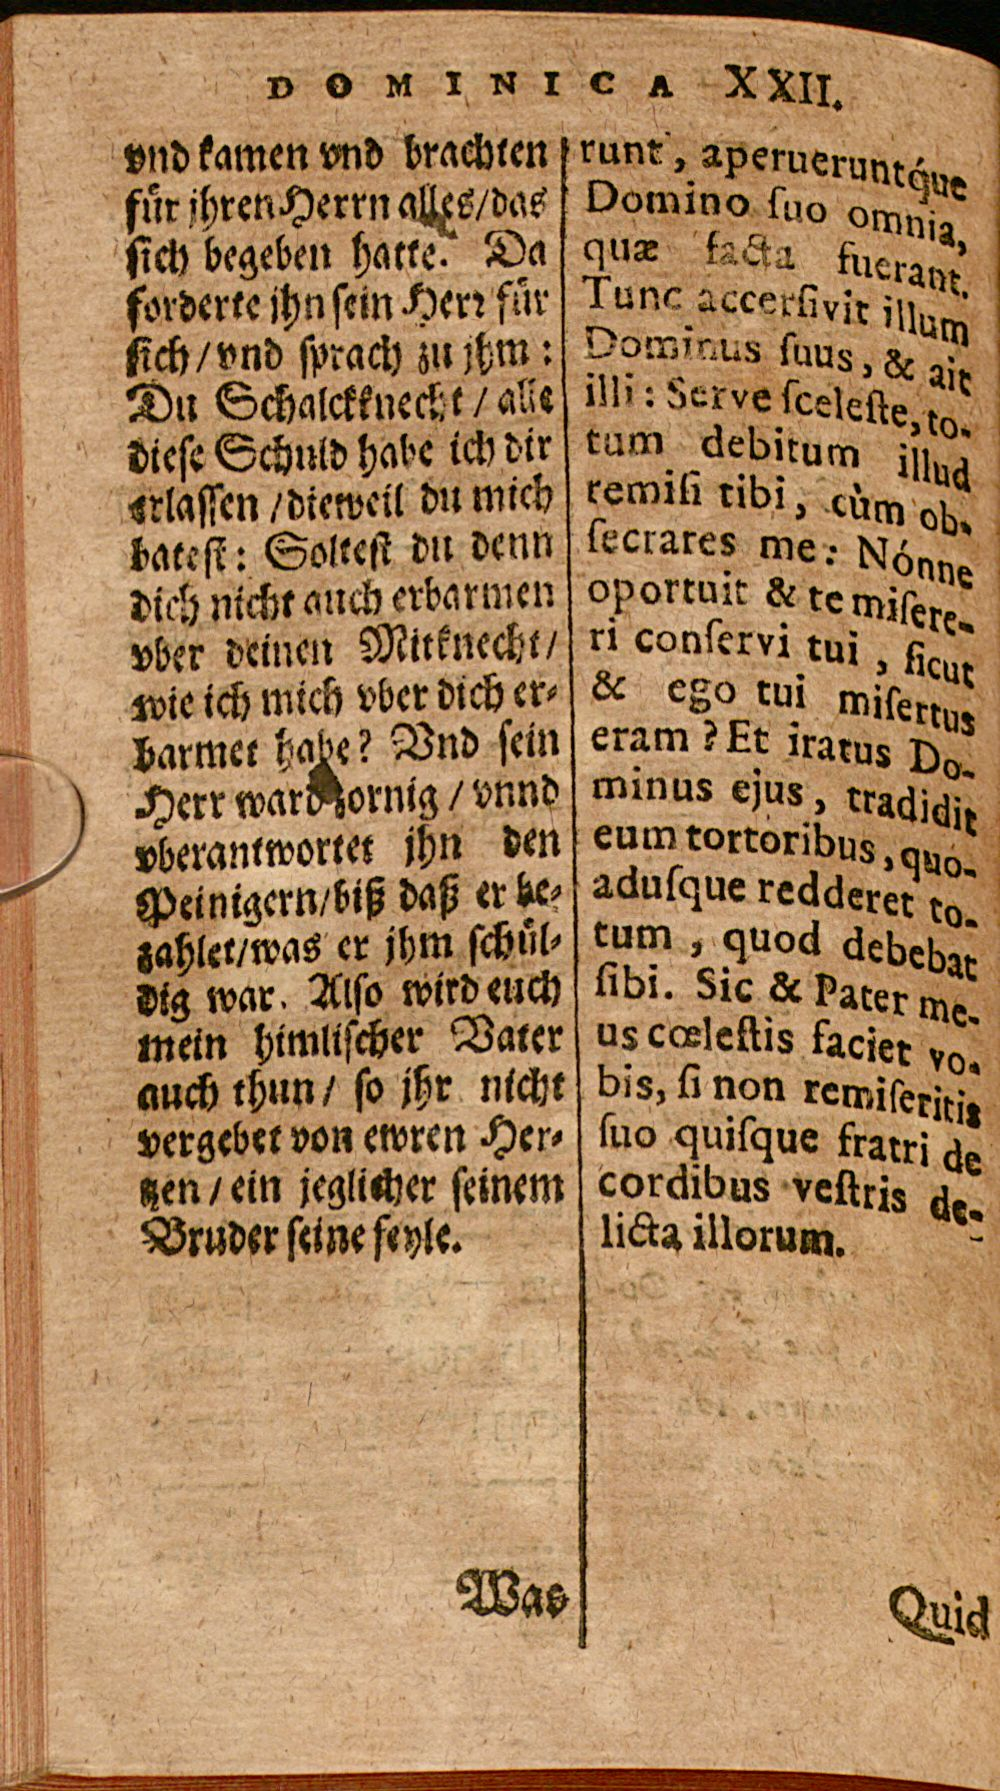 DOMINICA XXII.
vnd kamen vnd brachten
fuͤr jhren Herrn alles/das
sich begeben hatte. Da
forderte jhn sein Herr fuͤr
sich/vnd sprach zu jhm:
Du Schalckknecht/alle
diese Schuld habe ich dir
erlassen/dieweil du mich
batest: Soltest du denn
dich nicht auch erbarmen
vber deinen Mitknecht/
wie ich mich vber dich er-
barmet habe? Vnd sein
Herr ward zornig/vnnd
vberantwortet jhn den
Peinigern/biß daß er be-
zahlet/was er jhm schuͤl-
dig war. Also wird euch
mein himlischer Vater
auch thun/ so jhr nicht
vergebet von ewren Her-
tzen/ein jeglicher seinem
Bruder seine feyle.
Was
runt, aperueruntq́ue
Domino ſuo omnia,
quæ facta fuerant.
Tunc accerſivit illum
Dominus ſuus, & ait
illi: Serve ſceleſte, to-
tum debitum illud
remiſi tibi, cùm ob-
ſecrares me: Nónne
oportuit & te miſere-
ri conſervi tui, ſicut
& ego tui miſertus
eram? Et iratus Do-
minus ejus, tradidit
eum tortoribus, quo-
aduſque redderet to-
tum, quod debebat
ſibi. Sic & Pater me-
us cœleſtis faciet vo-
bis, ſi non remiſeritis
ſuo quiſque fratri de
cordibus veſtris de-
licta illorum.
Quid